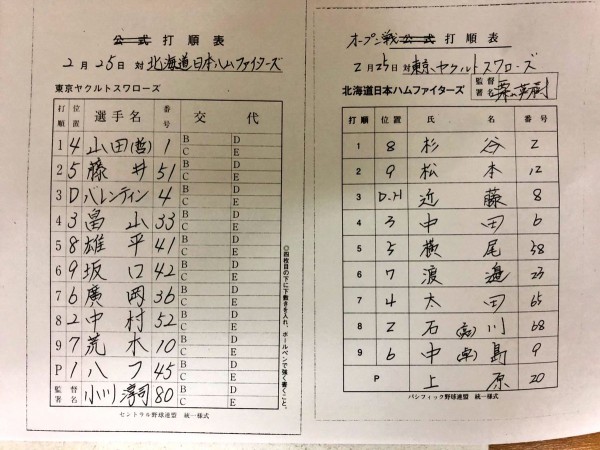 公式 打順表
2月25日 対 北海道日本ハムファイターズ
東京ヤクルトスワローズ
打順 位置 選手名 番号 交代
1 4 山田(哲) 1 B D C E
2 5 藤井 51 B D C E
3 D バレンティン 4 B D C E
4 3 畠山 33 B D C E
5 8 雄平 41 B D C E
6 9 坂口 42 B D C E
7 6 廣岡 36 B D C E
8 2 中村 52 B D C E
9 7 荒木 10 B D C E
P 1 ハフ 45 B D C E
監督署名 小川淳司 80 B D C E
セントラル野球連盟 統一様式
◎四枚目の下に下敷きを入れ、ボールペンで強く書くこと。
オープン戦 公式 打順表
2月25日 対 東京ヤクルトスワローズ
北海道日本ハムファイターズ 監督署名 栗山英樹
打順 位置 氏名 番号
1 8 杉谷 2
2 9 松本 12
3 D.H 近藤 8
4 3 中田 6
5 5 横尾 38
6 7 渡邉 23
7 4 太田 65
8 2 石(高)川 68
9 6 中(卓)島 9
P 上原 20
パシフィック野球連盟 統一様式